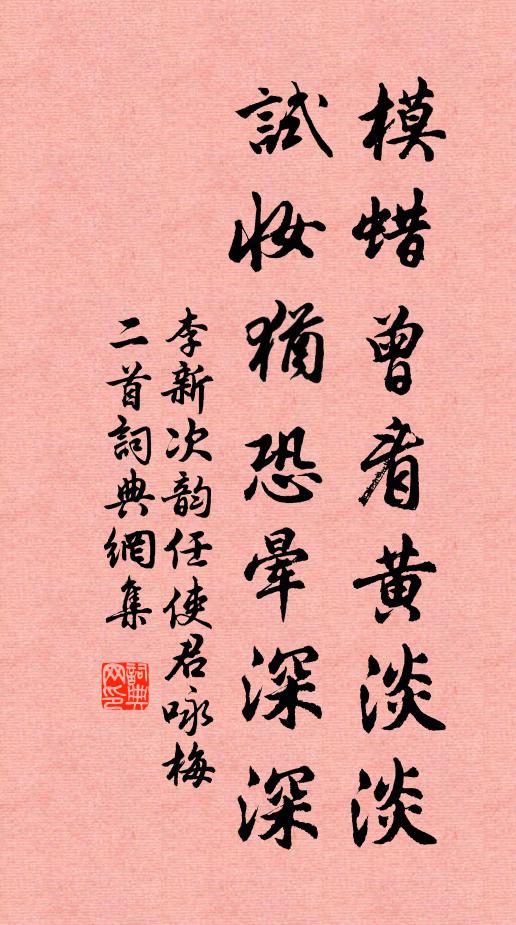 模蜡曾看黄淡淡
試妝猶恐暈深深
李新次韵任使君咏梅
二首詞典網集
詞典網印